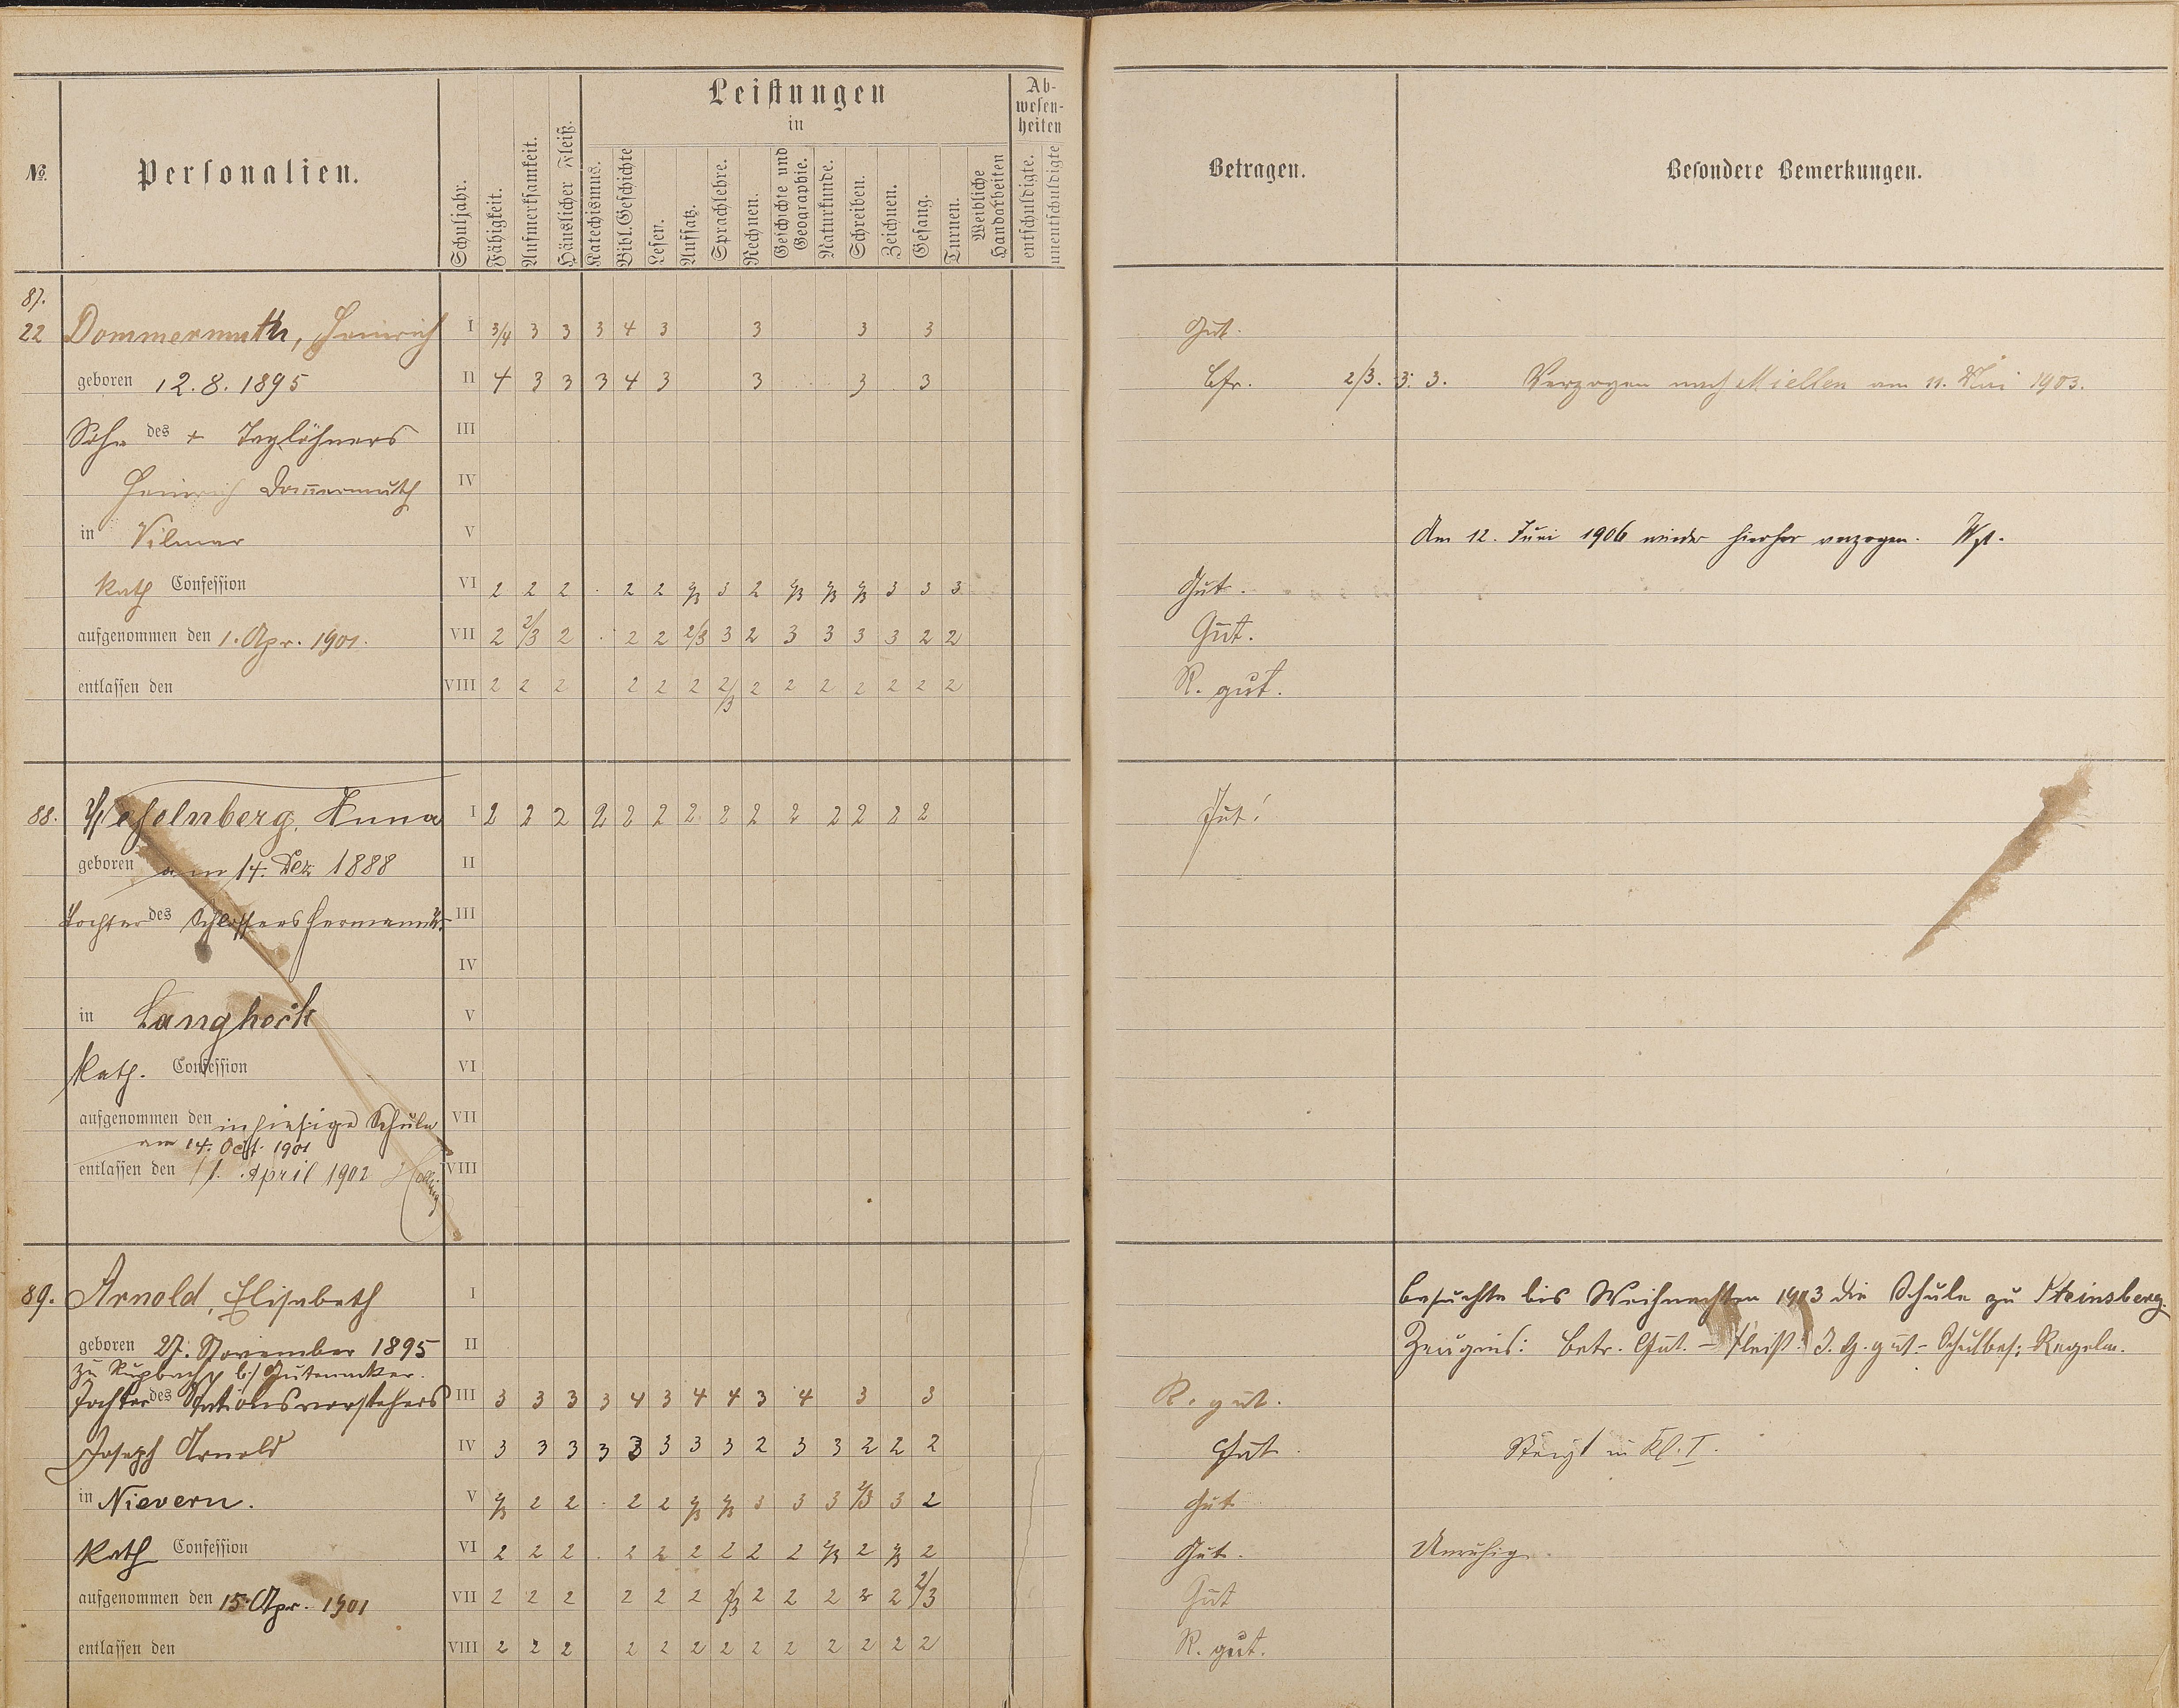 Leistungen
in
Ab-
wesen-
heiten
№
Personalien.
Schuljahr.
Fähigkeit.
Aufmerksamkeit.
Häuslicher Fleiß.
Katechismus.
Bibl. Geschichte
Lesen.
Aufsatz.
Sprachlehre.
Rechnen.
Geschichte und
Geographie.
Naturkunde.
Schreiben.
Zeichnen.
Gesang.
Turnen.
Weibliche
Handarbeiten
entschuldigte.
unentschuldigte
Betragen.
Besondere Bemerkungen.
87.
22 Dommermuth, Heinrich I 3/4 3 3 3 4 3 3 3 3 Gut.
geboren 12.8.1895 II 4 3 3 3 4 3 3 3 3 2/3. 3. 3. Verzogen nach Miellen am 11. Mai 1903.
Sohn des + Taglöhners III
Heinrich Dom̄ermuth IV
in Vilmar V Am 12. Juni 1906 wieder hierher verzogen.
Kath Confession VI 2 2 2 . 2 2 2/3 3 2 2/3 2/3 2/3 3 3 3 Gut.
aufgenommen den 1. Apr. 1901. VII 2 2/3 2 . 2 2 2/3 3 2 3 3 3 3 2 2 Gut.
entlassen den VIII 2 2 2 2 2 2 2/3 2 2 2 2 2 2 2 R. gut.
88. Anna I 2 2 2 2 2 2 2 2 2 2 2 2 2 2 Gut!
geboren am 14. Dez 1888 II
Tochter des Schlossers Hermann III
IV
in Langheck V
Kath. Confession VI
aufgenommen den in hiesige Schule VII
am 14. Oct. 1901
entlassen den 11. April 1902 VIII
89. Arnold, Elisabeth I besuchte bis Weihnachten 1903 die Schule zu Steinsberg.
geboren 27. November 1895 II Zeugnis: Betr. Gut. - Fleiß: Z. G. gut - Schulbes: Regelm.
zu Rupbach b/ Gutenacker.
Tochter des Stationsvorstehers III 3 3 3 3 4 3 4 4 3 4 3 3 R. gut.
Joseph Arnold IV 3 3 3 3 3 3 3 3 2 3 3 2 2 2 Gut. Steigt in Kl. I.
in Nievern. V 2/3 2 2 . 2 2 2/3 2/3 3 3 3 2/3 3 2 Gut
Kath Confession VI 2 2 2 . 2 2 2 2 2 2 2/3 2 2/3 2 Gut. Unruhig.
aufgenommen den 15. Apr. 1901 VII 2 2 2 2 2 2 2/3 2 2 2 2 2 2/3 Gut
entlassen den VIII 2 2 2 2 2 2 2 2 2 2 2 2 2 R. gut.